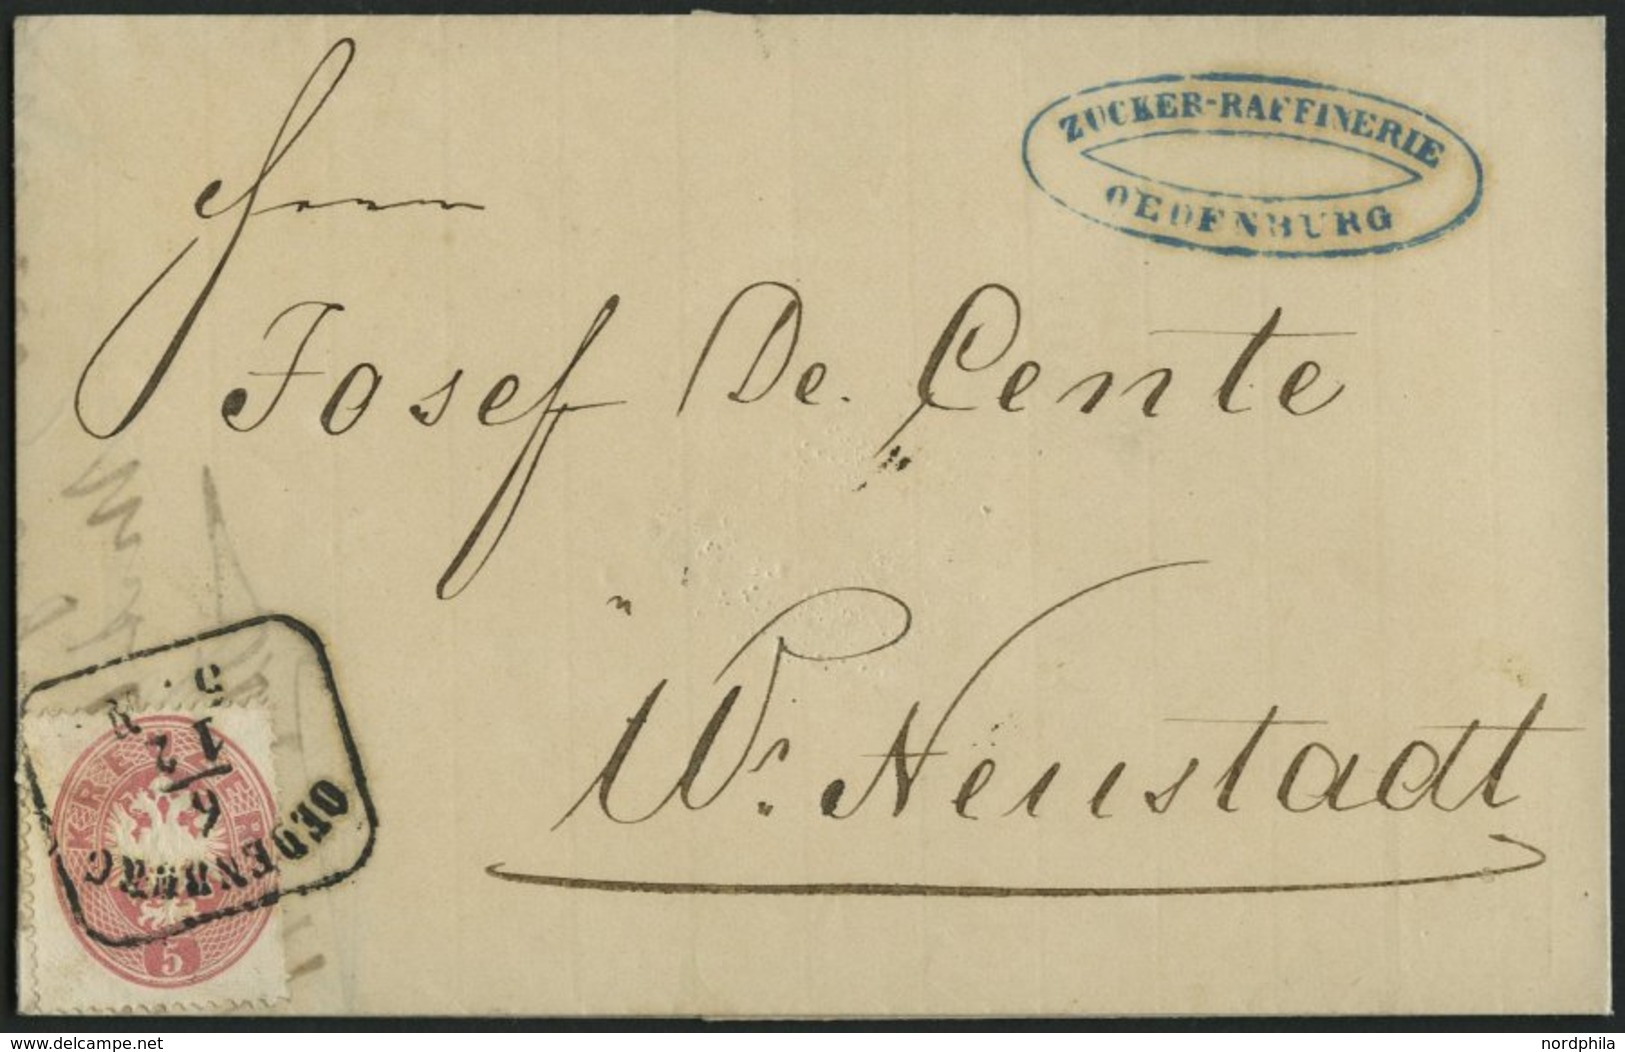 ZUCKER-RAFFINERIE
OEDENBURG
Herrn
Josef De. Cente
Wr. Neustadt
OEDENBURG
6/2
1 5
N.
KREUZER
5
www.delcampe.net
nordphila